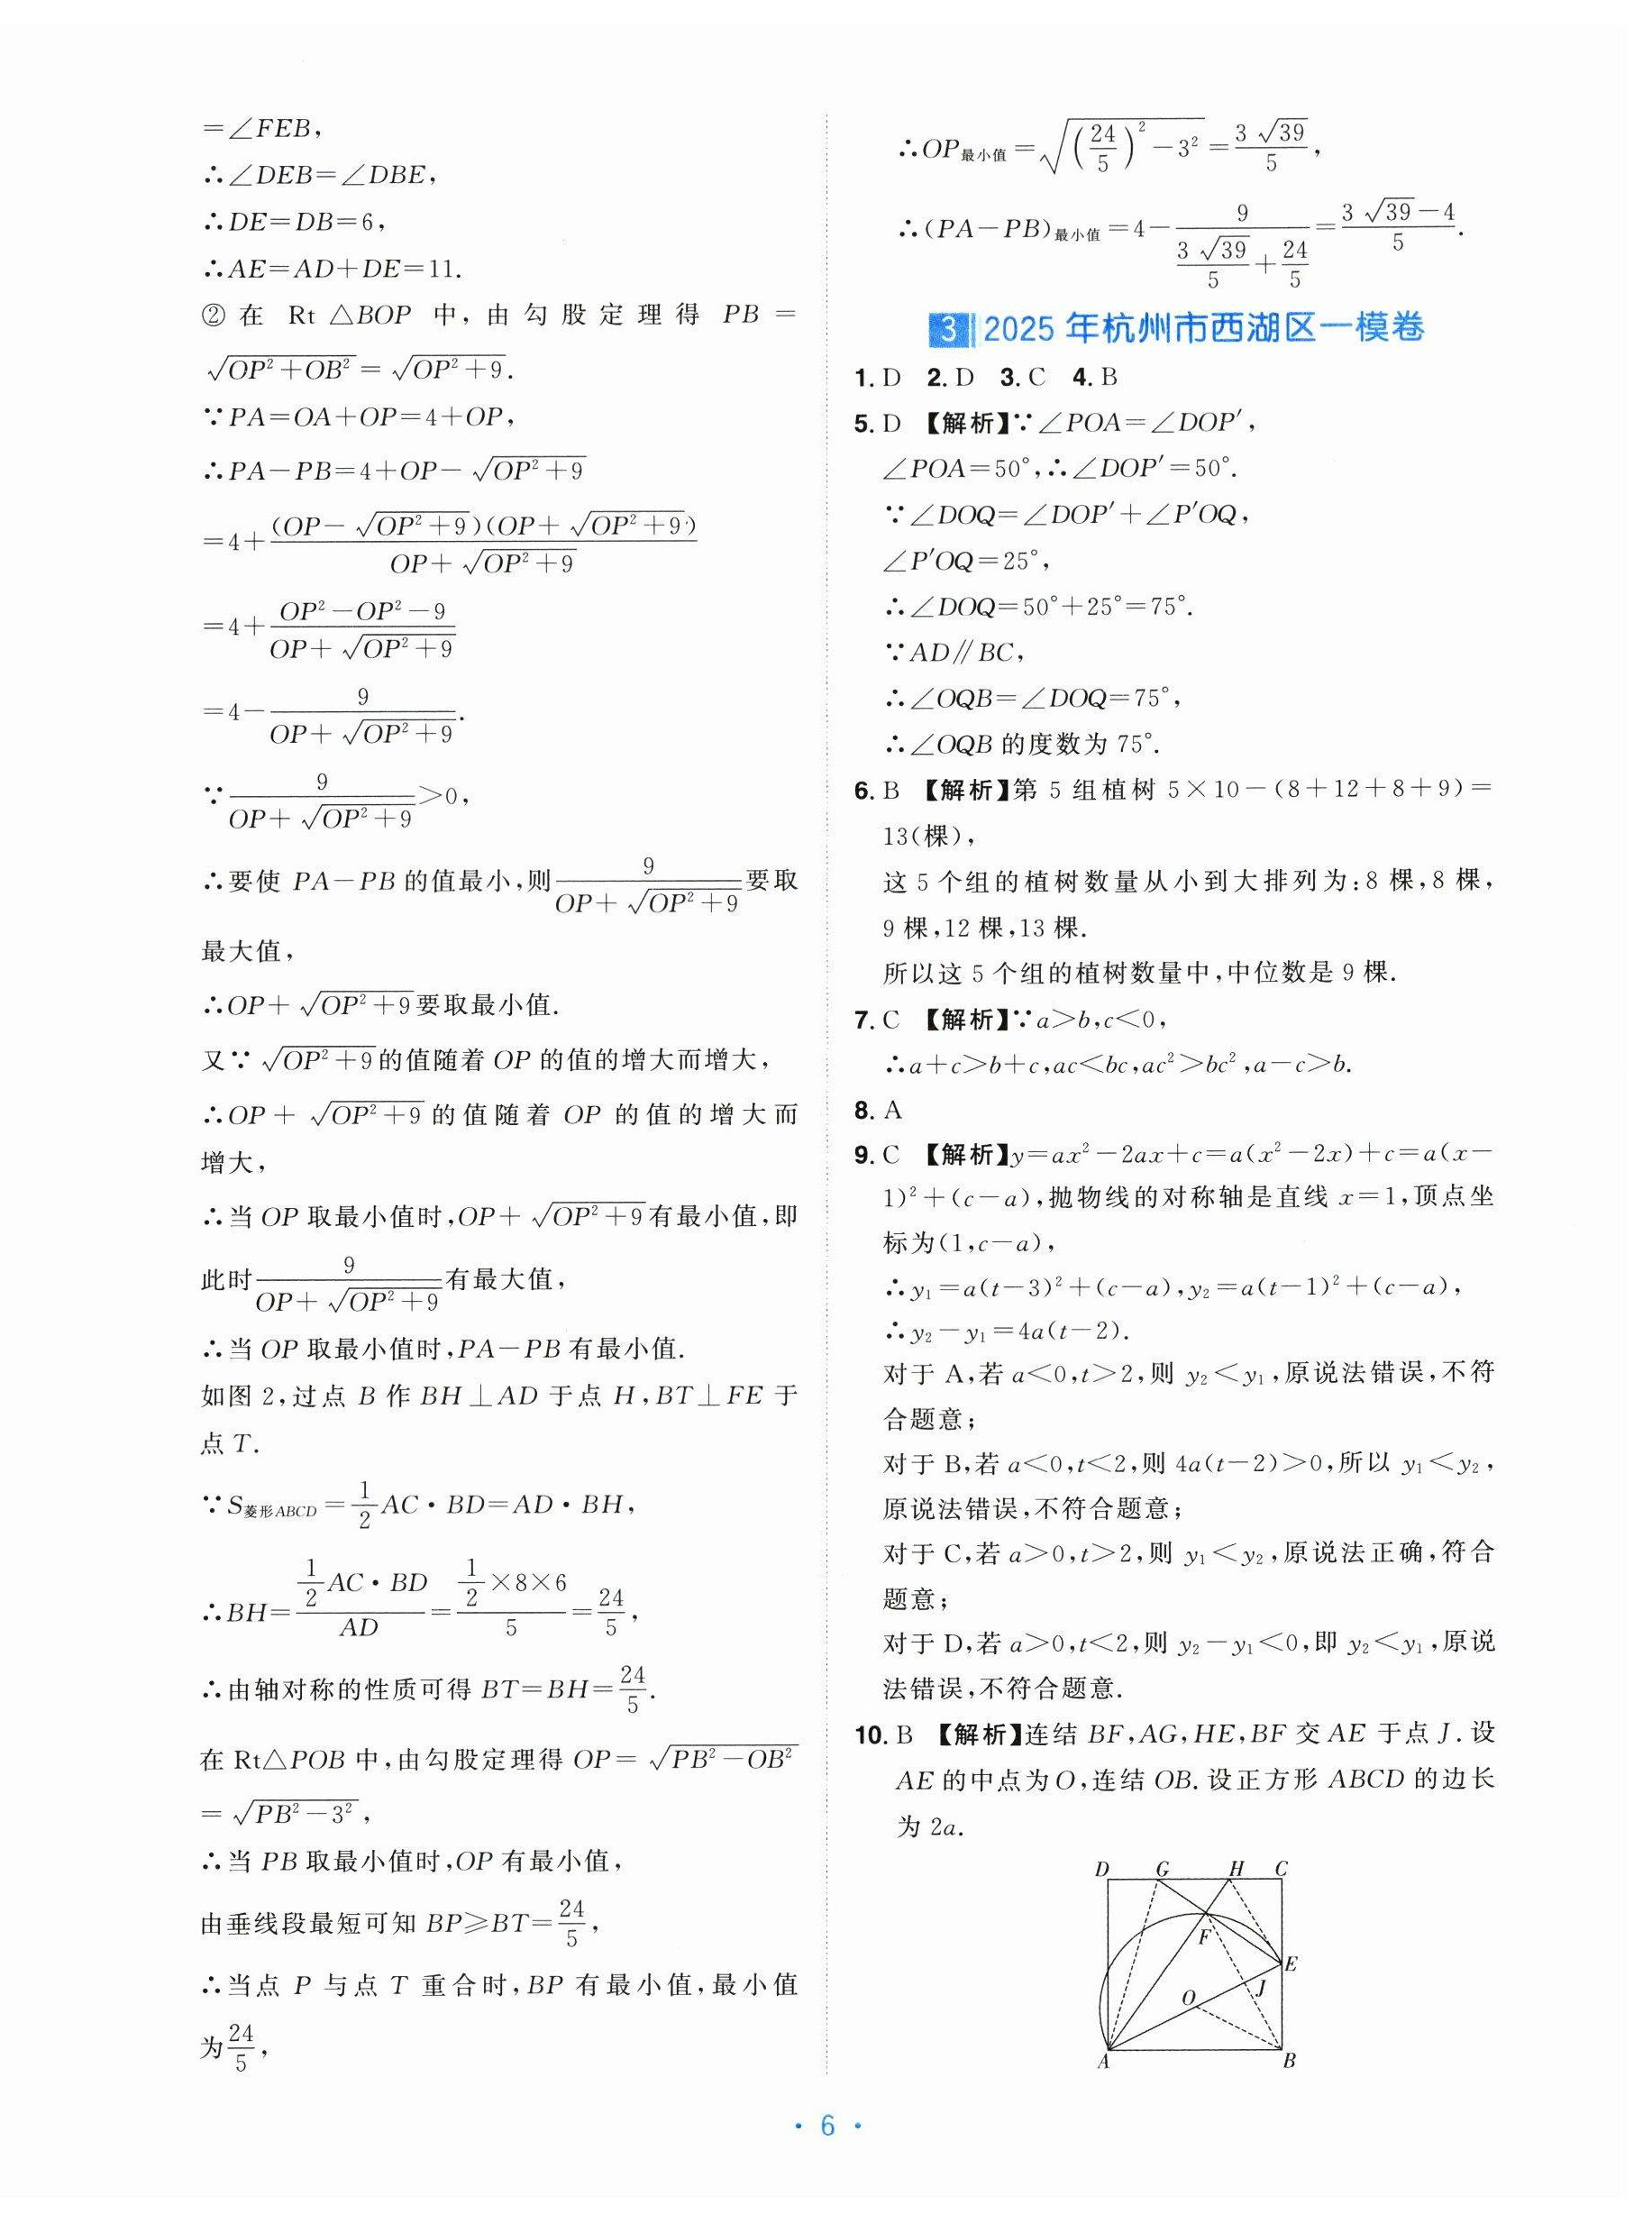 =∠FEB,
∴∠DEB=∠DBE,
∴DE=DB=6,
∴AE=AD+DE=11.
② 在 Rt △BOP 中,由勾股定理得 PB =
√(OP²+OB²) = √(OP²+9).
∵PA=OA+OP=4+OP,
∴PA-PB=4+OP-√(OP²+9)
=4+(OP-√(OP²+9))(OP+√(OP²+9))/(OP+√(OP²+9))
=4+(OP²-OP²-9)/(OP+√(OP²+9))
=4-9/(OP+√(OP²+9)).
∵9/(OP+√(OP²+9))>0,
∴要使 PA-PB 的值最小,则9/(OP+√(OP²+9))要取
最大值,
∴OP+√(OP²+9)要取最小值.
又∵√(OP²+9)的值随着 OP 的值的增大而增大,
∴OP+√(OP²+9)的值随着 OP 的值的增大而
增大,
∴当 OP 取最小值时,OP+√(OP²+9)有最小值,即
此时9/(OP+√(OP²+9))有最大值,
∴当 OP 取最小值时,PA-PB 有最小值.
如图 2,过点 B 作 BH⊥AD 于点 H,BT⊥FE 于
点 T.
∵S菱形ABCD=1/2AC·BD=AD·BH,
∴BH=(1/2AC·BD)/AD=(1/2×8×6)/5=24/5,
∴由轴对称的性质可得 BT=BH=24/5.
在 Rt△POB 中,由勾股定理得 OP=√(PB²-OB²)
=√(PB²-3²),
∴当 PB 取最小值时,OP 有最小值,
由垂线段最短可知 BP≥BT=24/5,
∴当点 P 与点 T 重合时,BP 有最小值,最小值
为24/5,
∴OP最小值=√((24/5)²-3²)=3√39/5,
∴(PA-PB)最小值=4-9/(3√39/5+24/5)=(3√39-4)/5.
3 2025 年杭州市西湖区一模卷
1. D 2. D 3. C 4. B
5. D 【解析】∵∠POA=∠DOP′,
∠POA=50°,∴∠DOP′=50°.
∵∠DOQ=∠DOP′+∠P′OQ,
∠P′OQ=25°,
∴∠DOQ=50°+25°=75°.
∵AD∥BC,
∴∠OQB=∠DOQ=75°,
∴∠OQB 的度数为 75°.
6. B 【解析】第 5 组植树 5×10-(8+12+8+9)=
13(棵),
这 5 个组的植树数量从小到大排列为:8 棵,8 棵,
9 棵,12 棵,13 棵.
所以这 5 个组的植树数量中,中位数是 9 棵.
7. C 【解析】∵a>b,c<0,
∴a+c>b+c,ac<bc,ac²>bc²,a-c>b.
8. A
9. C 【解析】y=ax²-2ax+c=a(x²-2x)+c=a(x-
1)²+(c-a),抛物线的对称轴是直线 x=1,顶点坐
标为(1,c-a),
∴y₁=a(t-3)²+(c-a),y₂=a(t-1)²+(c-a),
∴y₂-y₁=4a(t-2).
对于 A,若 a<0,t>2,则 y₂<y₁,原说法错误,不符
合题意;
对于 B,若 a<0,t<2,则 4a(t-2)>0,所以 y₁<y₂,
原说法错误,不符合题意;
对于 C,若 a>0,t>2,则 y₁<y₂,原说法正确,符合
题意;
对于 D,若 a>0,t<2,则 y₂-y₁<0,即 y₂<y₁,原说
法错误,不符合题意.
10. B 【解析】连结 BF,AG,HE,BF 交 AE 于点 J.设
AE 的中点为 O,连结 OB.设正方形 ABCD 的边长
为 2a.
D G H C
F
E
J
O
A B
· 6 ·